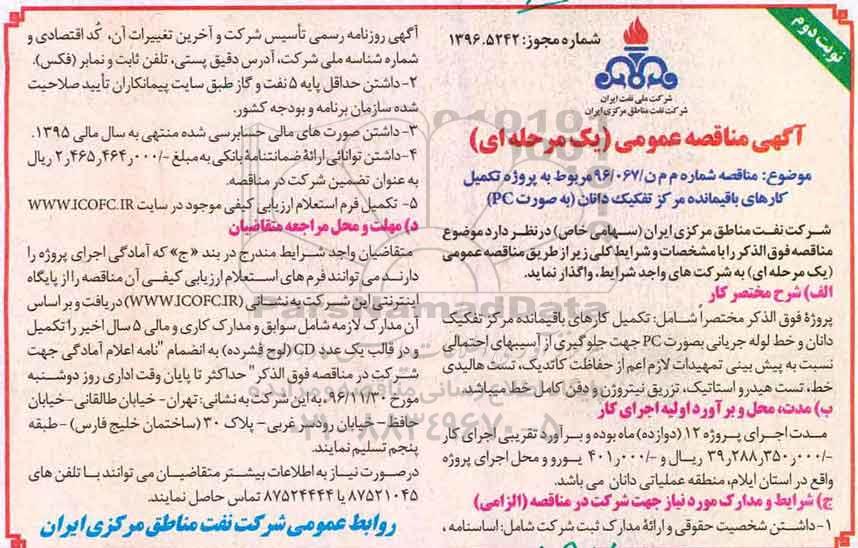 نوبت دوم
شماره مجوز: ۱۳۹۶.۵۲۴۲
شرکت ملی نفت ایران
شرکت نفت مناطق مرکزی ایران
آگهی مناقصه عمومی (یک مرحله ای)
موضوع: مناقصه شماره م م ن/۹۶/۰۶۷ مربوط به پروژه تکمیل
کارهای باقیمانده مرکز تفکیک دانان (به صورت PC)
شرکت نفت مناطق مرکزی ایران (سهامی خاص) در نظر دارد موضوع
مناقصه فوق الذکر را با مشخصات و شرایط کلی زیر از طریق مناقصه عمومی
(یک مرحله ای) به شرکت های واجد شرایط، واگذار نماید.
الف) شرح مختصر کار
پروژۀ فوق الذکر مختصراً شامل: تکمیل کارهای باقیمانده مرکز تفکیک
دانان و خط لوله جریانی بصورت PC جهت جلوگیری از آسیبهای احتمالی
نسبت به پیش بینی تمهیدات لازم اعم از حفاظت کاتدیک، تست هالیدی
خط، تست هیدرو استاتیک، تزریق نیتروژن و دفن کامل خط می باشد.
ب) مدت، محل و برآورد اولیه اجرای کار
مدت اجرای پروژه ۱۲ (دوازده) ماه بوده و برآورد تقریبی اجرای کار
-/۰۰۰ر۳۵۰ر۲۸۸ر۳۹ ریال و -/۰۰۰ر۴۰۱ یورو و محل اجرای پروژه
واقع در استان ایلام، منطقه عملیاتی دانان می باشد.
ج) شرایط و مدارک مورد نیاز جهت شرکت در مناقصه (الزامی)
۱-داشتن شخصیت حقوقی و ارائۀ مدارک ثبت شرکت شامل: اساسنامه ،
آگهی روزنامه رسمی تأسیس شرکت و آخرین تغییرات آن، کُد اقتصادی و
شماره شناسه ملی شرکت، آدرس دقیق پستی، تلفن ثابت و نمابر (فکس).
۲-داشتن حداقل پایه ۵ نفت و گاز طبق سایت پیمانکاران تأیید صلاحیت
شده سازمان برنامه و بودجه کشور.
۳-داشتن صورت های مالی حسابرسی شده منتهی به سال مالی ۱۳۹۵.
۴-داشتن توانائی ارائۀ ضمانتنامۀ بانکی به مبلغ -/۰۰۰ر۴۶۴ر۴۶۵ر۲ ریال
به عنوان تضمین شرکت در مناقصه.
۵- تکمیل فرم استعلام ارزیابی کیفی موجود در سایت WWW.ICOFC.IR
د) مهلت و محل مراجعه متقاضیان
متقاضیان واجد شرایط مندرج در بند «ج» که آمادگی اجرای پروژه را
دارند می توانند فرم های استعلام ارزیابی کیفی آن مناقصه را از پایگاه
اینترنتی این شرکت به نشانی (WWW.ICOFC.IR) دریافت و بر اساس
آن مدارک لازمه شامل سوابق و مدارک کاری و مالی ۵ سال اخیر را تکمیل
و در قالب یک عدد CD (لوح فشرده) به انضمام "نامه اعلام آمادگی جهت
شرکت در مناقصه فوق الذکر" حداکثر تا پایان وقت اداری روز دوشنبه
مورخ ۹۶/۱۱/۳۰، به این شرکت به نشانی: تهران- خیابان طالقانی-خیابان
حافظ- خیابان رودسر غربی- پلاک ۳۰ (ساختمان خلیج فارس) -طبقه
پنجم تسلیم نمایند.
درصورت نیاز به اطلاعات بیشتر متقاضیان می توانند با تلفن های
۸۷۵۲۱۰۴۵ یا ۸۷۵۲۴۴۴۴ تماس حاصل نمایند.
روابط عمومی شرکت نفت مناطق مرکزی ایران
ParsNamadData
۰۲۱-۸۸۳۴۹۶۷۰-۵